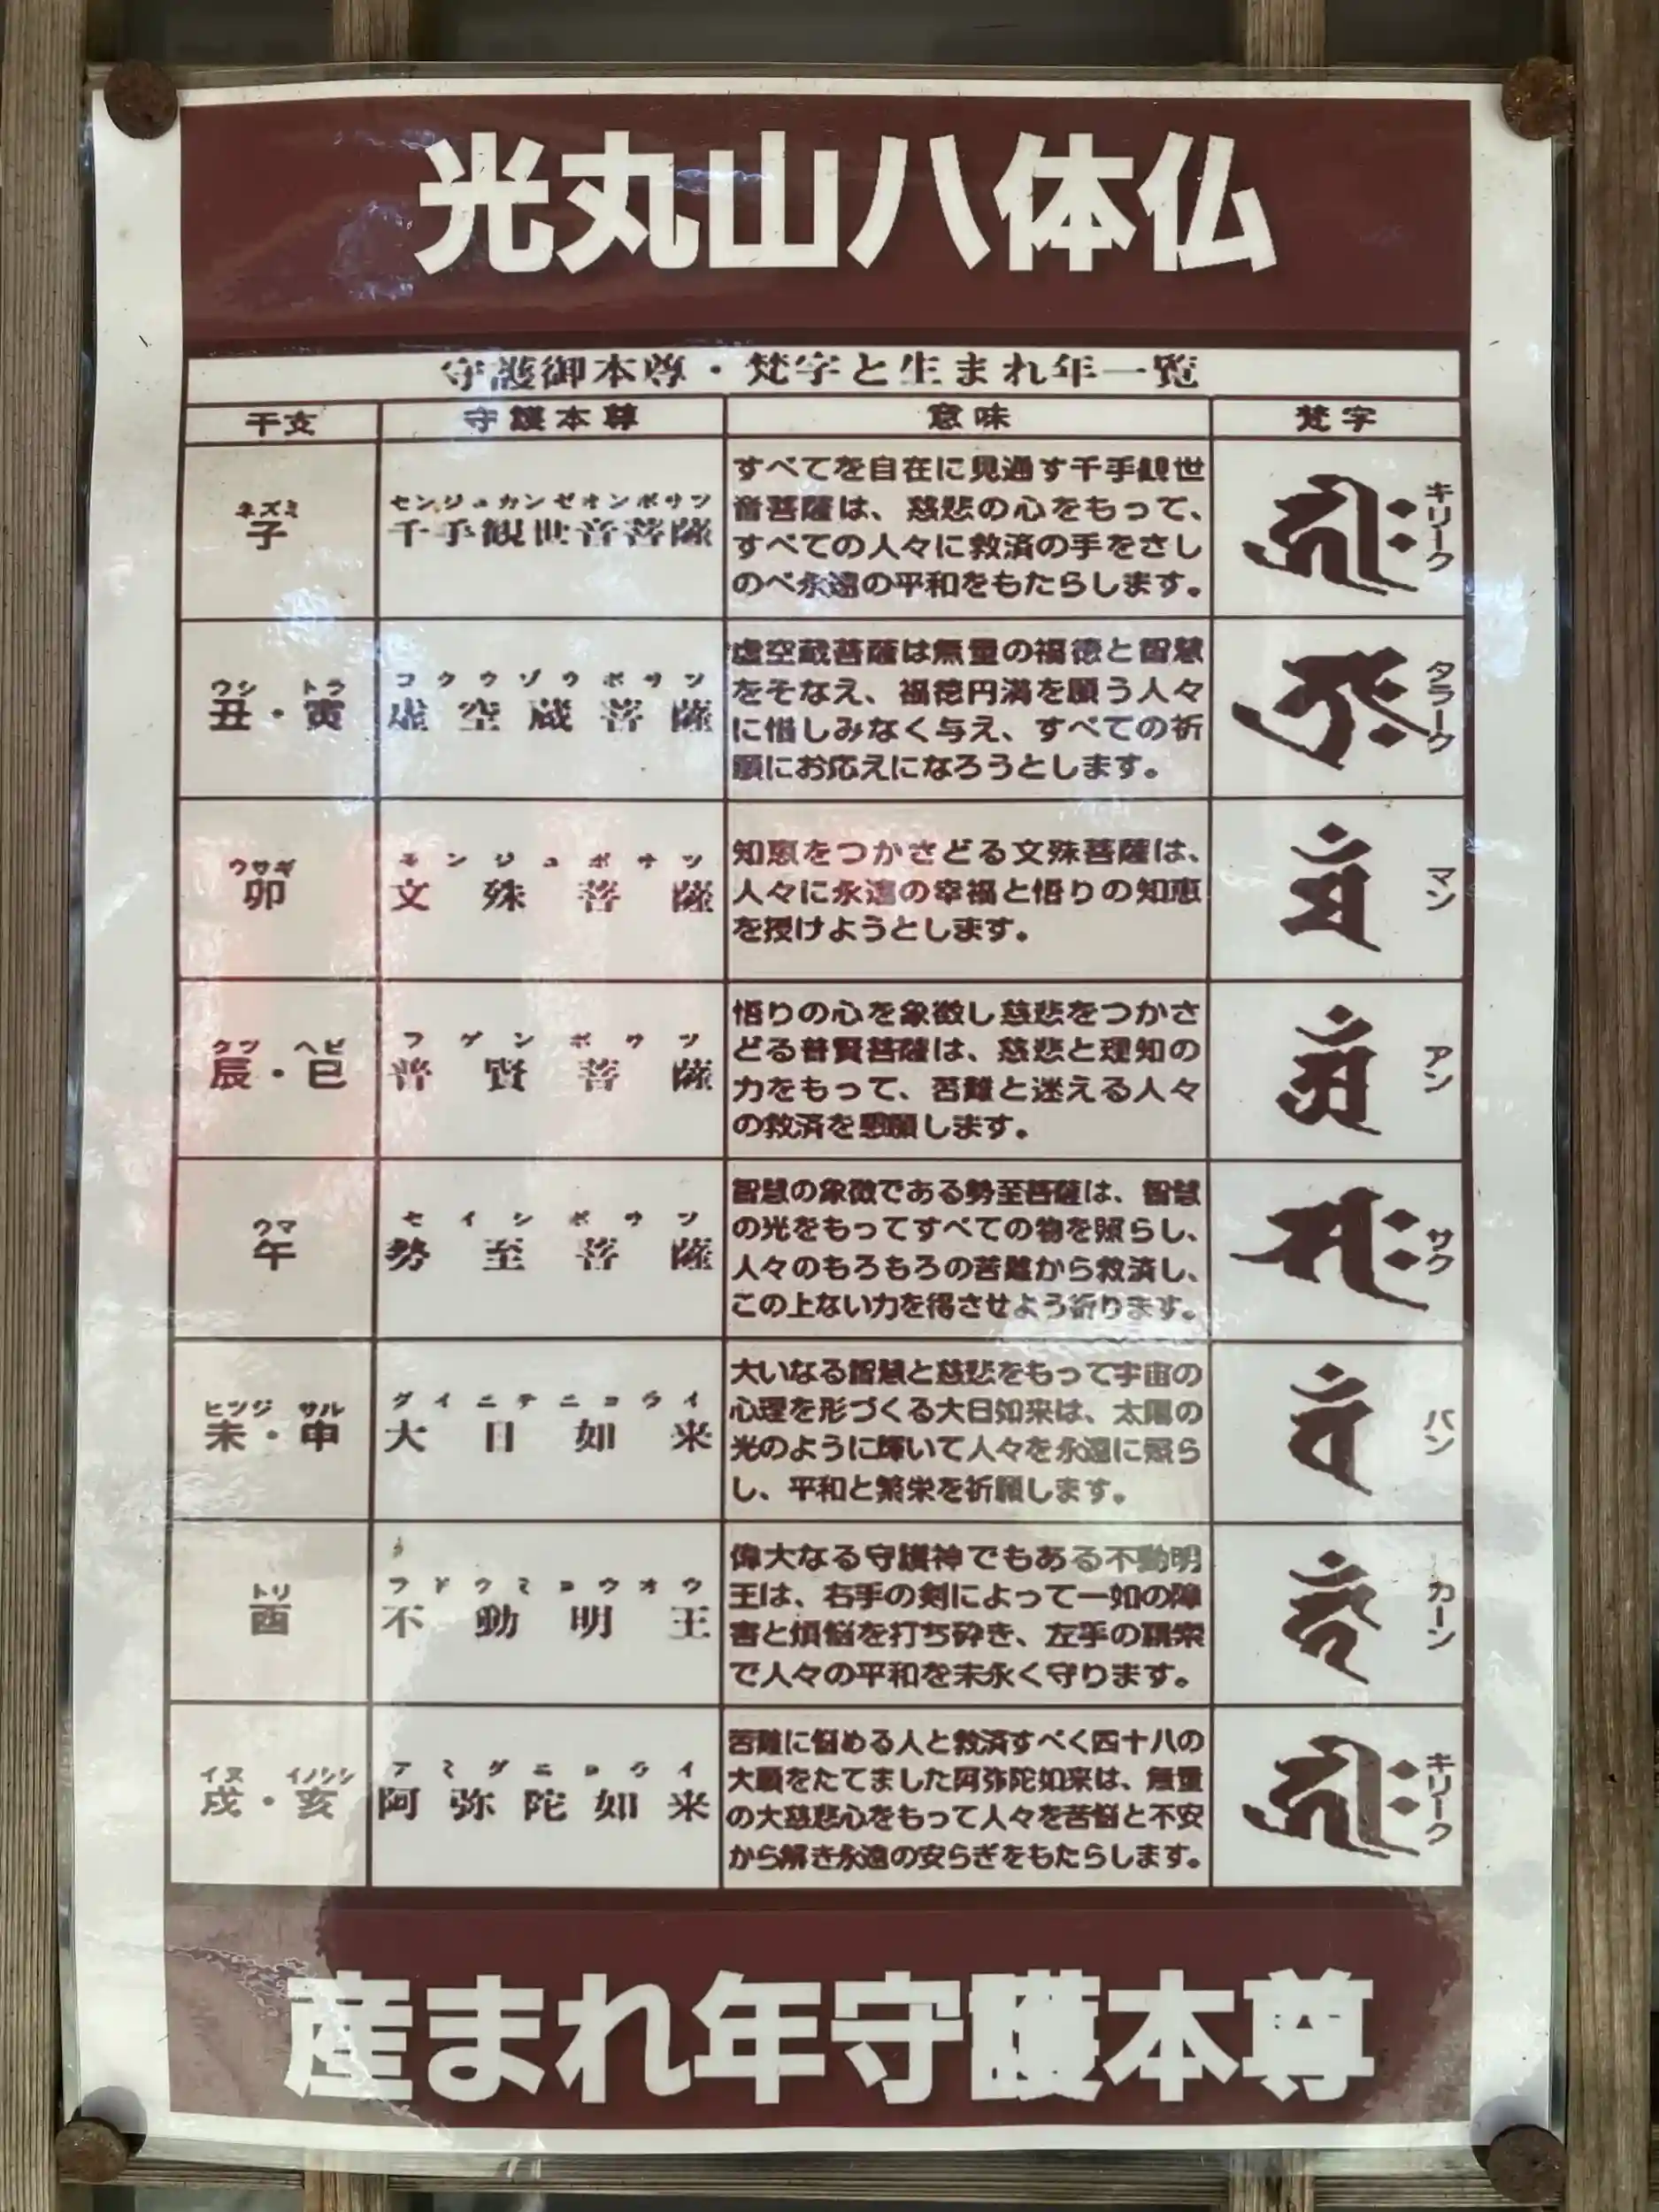 光丸山八体仏
守護御本尊・梵字と生まれ年一覧
干支 守護本尊 意味 梵字
ネズミ
子
センジュカンゼオンボサツ
千手観世音菩薩
すべてを自在に見通す千手観世
音菩薩は、慈悲の心をもって、
すべての人々に救済の手をさし
のべ永遠の平和をもたらします。
キリーク
ウシ トラ
丑・寅
コクウゾウボサツ
虚空蔵菩薩
虚空蔵菩薩は無量の福徳と智慧
をそなえ、福徳円満を願う人々
に惜しみなく与え、すべての祈
願にお応えになろうとします。
タラーク
ウサギ
卯
モンジュボサツ
文殊菩薩
知恵をつかさどる文殊菩薩は、
人々に永遠の幸福と悟りの知恵
を授けようとします。
マン
タツ ヘビ
辰・巳
フゲンボサツ
普賢菩薩
悟りの心を象徴し慈悲をつかさ
どる普賢菩薩は、慈悲と理知の
力をもって、苦難と迷える人々
の救済を懇願します。
アン
ウマ
午
セイシボサツ
勢至菩薩
智慧の象徴である勢至菩薩は、智慧
の光をもってすべての物を照らし、
人々のもろもろの苦難から救済し、
この上ない力を得させよう祈ります。
サク
ヒツジ サル
未・申
ダイニチニョライ
大日如来
大いなる智慧と慈悲をもって宇宙の
心理を形づくる大日如来は、太陽の
光のように輝いて人々を永遠に照ら
し、平和と繁栄を祈願します。
バン
トリ
酉
フドウミョウオウ
不動明王
偉大なる守護神でもある不動明
王は、右手の剣によって一如の障
害と煩悩を打ち砕き、左手の羂索
で人々の平和を末永く守ります。
カーン
イヌ イノシシ
戌・亥
アミダニョライ
阿弥陀如来
苦難に悩める人と救済すべく四十八の
大願をたてました阿弥陀如来は、無量
の大慈悲心をもって人々を苦悩と不安
から解き永遠の安らぎをもたらします。
キリーク
産まれ年守護本尊